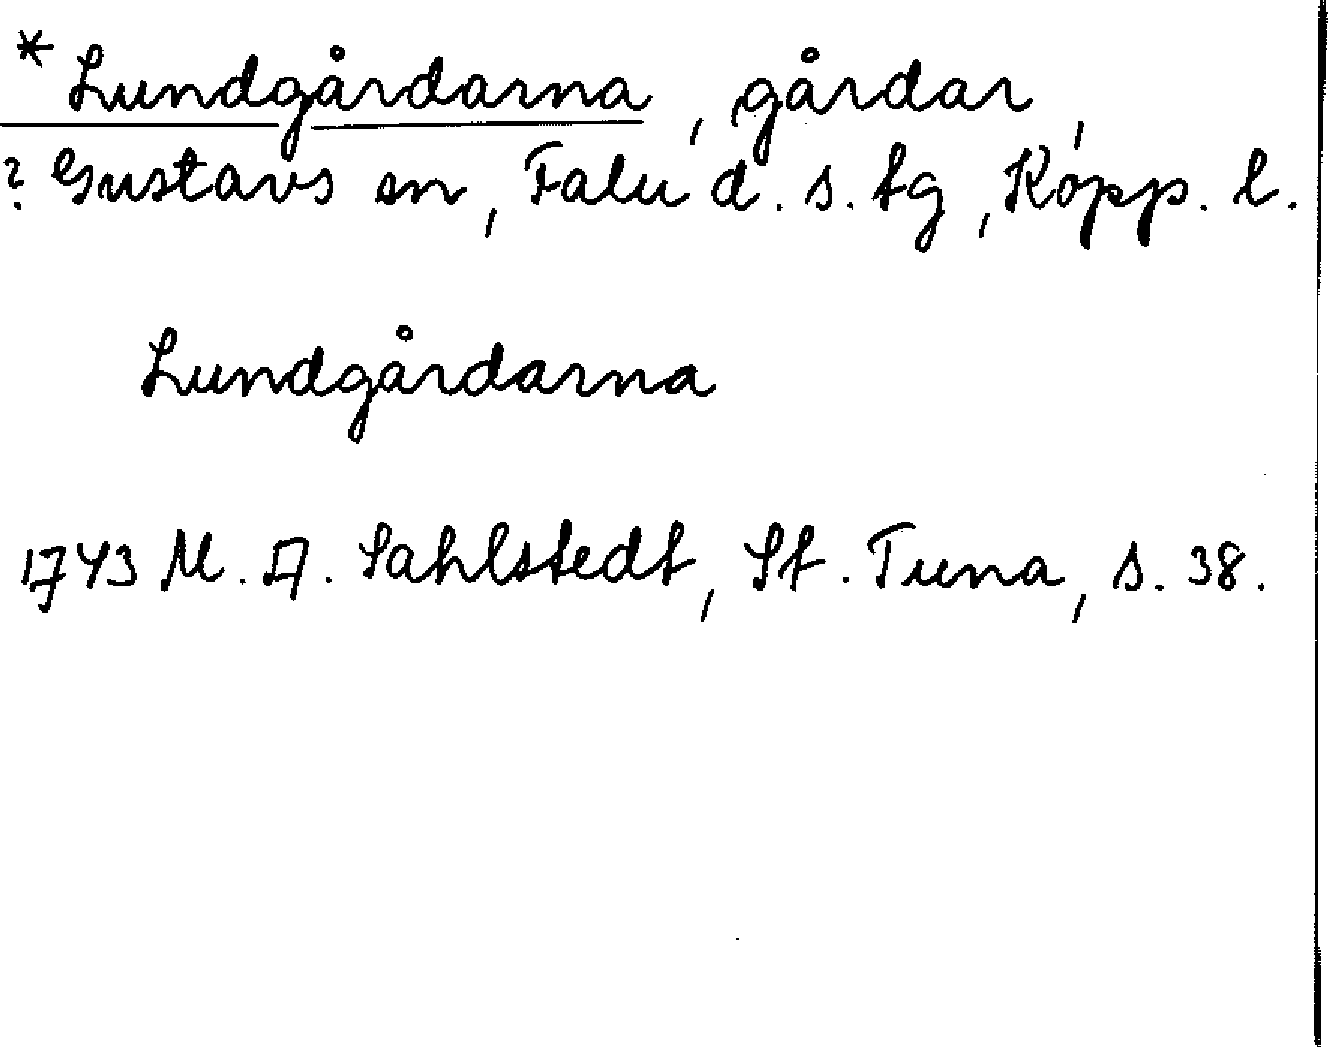 * Lundgårdarna, gårdar,
? Gustavs sn, Falu d. s. tg, Kopp. l.
Lundgårdarna
1743 M. A. Sahlstedt, St. Tuna, s. 38.